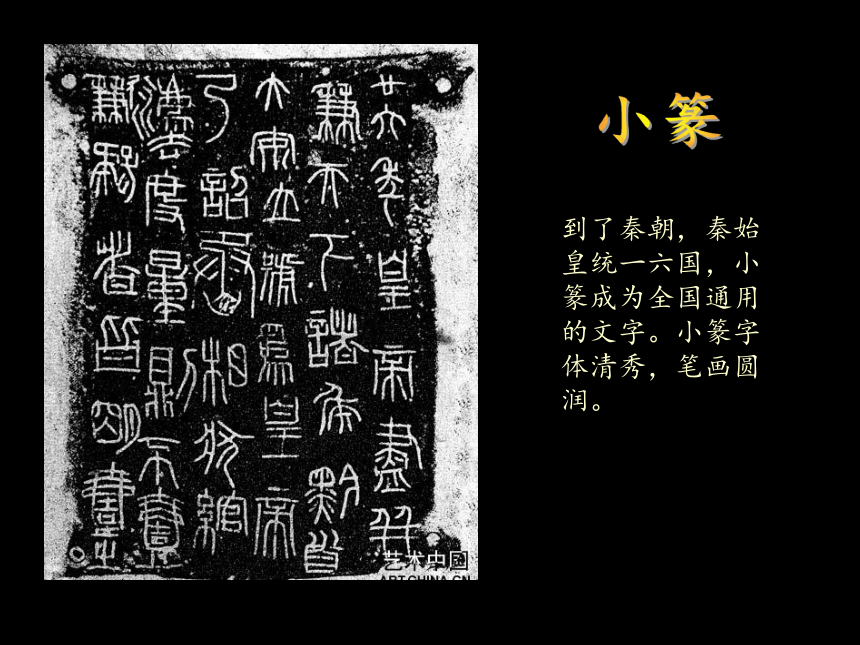 小篆
到了秦朝，秦始
皇统一六国，小
篆成为全国通用
的文字。小篆字
体清秀，笔画圆
润。
廿六年皇帝盡并
兼天下諸侯黔首
大安立號為皇帝
乃詔丞相狀綰
灋度量則不壹
歉疑者皆明壹之
艺术中國
ARTCHINA.CN